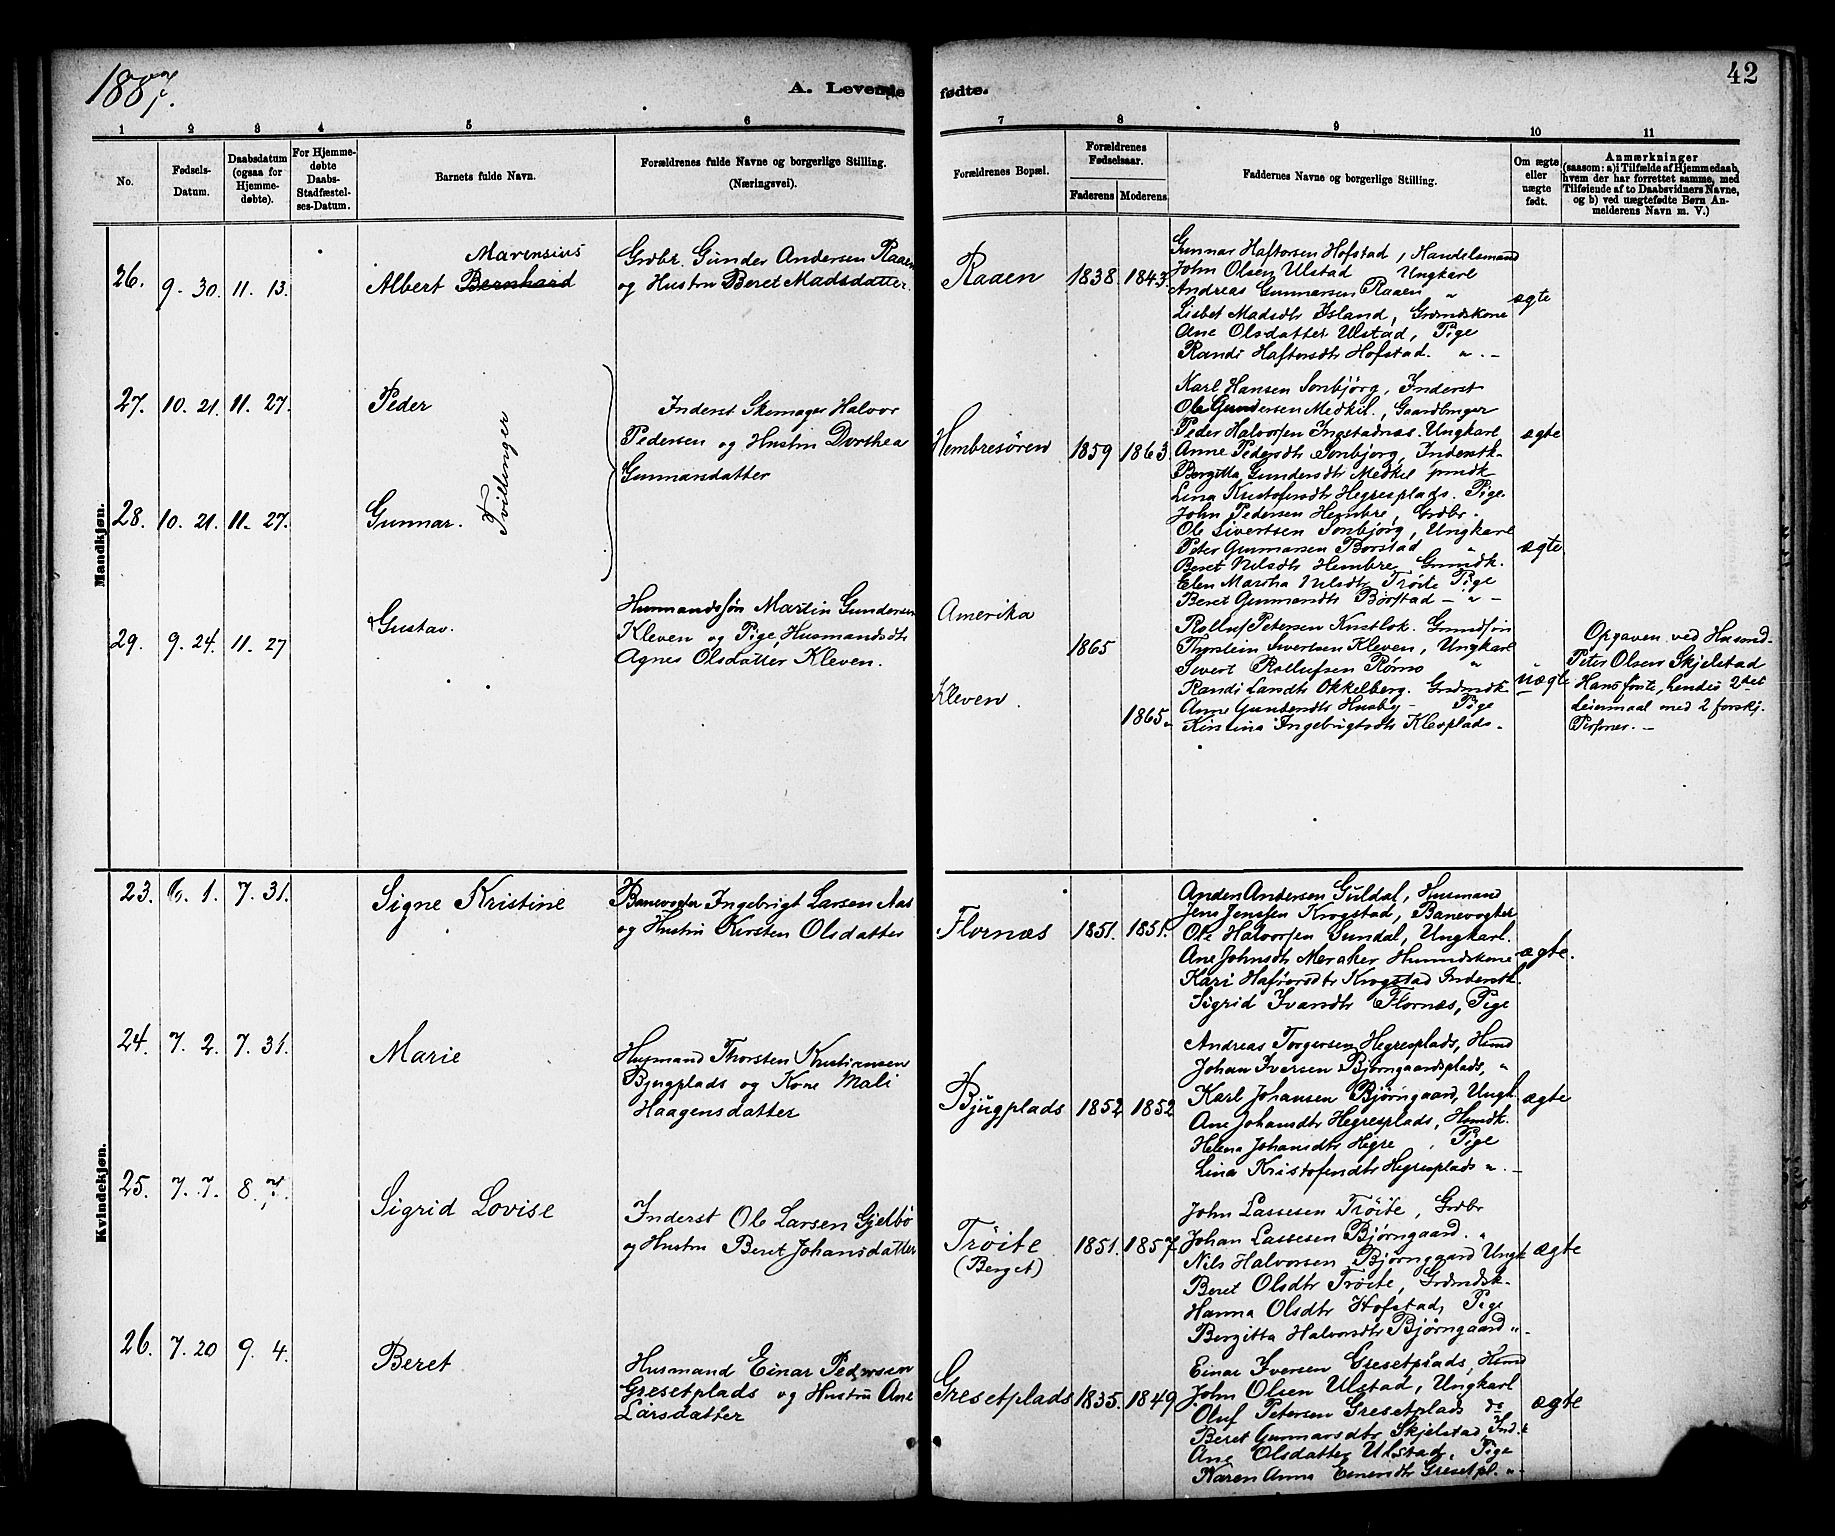 1887.
A. Levende fødte.
42
1 2 3 4 5 6 7 8 9 10 11
No.
Fødsels-Datum.
Daabsdatum (ogsaa for Hjemmedøbte).
For Hjemmedøbte Daabs-Stadfæstelses-Datum.
Barnets fulde Navn.
Forældrenes fulde Navne og borgerlige Stilling. (Næringsvei).
Forældrenes Bopæl.
Forældrenes Fødselsaar.
Faderens Moderens
Faddernes Navne og borgerlige Stilling.
Om ægte eller uægte født.
Anmærkninger
(saasom: a) i Tilfælde af Hjemmedaab,
hvem der har forrettet samme, med
Tilføiende af to Daabsvidners Navne,
og b) ved uægtefødte Børn Anmelderens Navn m. V.)
Mandkjøn.
26. 9. 30. 11. 13.
Marensius
Albert Bernhard
Grdbr. Gunder Andersen Raaen
og Hustru Beret Madsdatter.
Raaen 1838. 1843.
Gunnar Haftorsen Hofstad, Handelsmand
John Olsen Ulstad Ungkarl
Andreas Gunnarsen Raaen "
Lisbet Madsdtr Island, Grdmdskone
Ane Olsdatter Ulstad, Pige
Randi Haftorsdtr Hofstad. " -
ægte
27. 10. 21. 11. 27. Peder
Tvillinger
Inderst Skomager Halvor
Pedersen og Hustru Dorthea
Gunnarsdatter
Hembresøren 1859 1863
Karl Hansen Sonbjørg, Inderst
Ole Gundersen Medkil., Gaardbruger
Peder Halvorsen Ingstadnæs. Ungkarl
Anne Pedersdtr Sonbjørg, Inderstk.
Bergitta Gundersdtr Medkil
Lina Kristofersdtr Hegresplads. Pige.
ægte
28. 10. 21. 11. 27. Gunnar.
John Pedersen Hembre, Grdbr.
Ole Sivertsen Sonbjørg, Ungkarl
Peter Gunnarsen Borstad "
Beret Nilsdtr Hembre, Grmdk.
Elen Martha Nilsdtr Trøite Pige
Beret Gunnarsdtr Børstad - " -
ægte
29. 9. 24. 11. 27 Gustav.
Husmandssøn Martin Gundersen
Kleven og Pige, Husmandsdtr
Agnes Olsdatter Kleven.
Amerika
1865
Kleven.
1865.
Rolluf Petersen
Thorstein Sivertsen Kleven, Ungkarl
Sivert Rollufsen "
Randi Larsdtr Okkelberg. Grdmdk
Anne Gundersdtr Husby - Pige
Kirstina Ingebrigtsdtr Klevplads.
uægte
Opgaven ved Husmd
Peter Olsen Skjelstad
Hans første, hendes 2det
Leiermaal med 2 forskj.
Personer. -
Kvindekjøn.
23. 6. 1. 7. 31. Signe Kristine
Banevogter Ingebrigt Larsen Aas
og Hustru Kirsten Olsdatter
Flornæs 1851. 1851.
Anders Andersen Guldal, Husmand
Jens Jenssen Krogstad, Banevogter
Ole Halvorsen Sundal, Ungkarl.
Ane Johnsdtr Meraker Husmdskone
Kari Krogstad Inderstk.
Sigrid Ivarsdtr Flornæs, Pige
ægte.
24. 7. 2. 7. 31. Marie
Husmand Thorsten Kristiansen
Bjugplads og Kone Mali
Haagensdatter
Bjugplads 1852 1852
Andreas Torgersen Hegresplads, Husmd
Johan Iversen Bjørngaardsplads, "
Karl Johansen Bjørngaard, Ungk.
Ane Johansdtr Hegresplads, Husmdk.
Helena Johansdtr Hegre, Pige
Lina Kristofersdtr Hegresplads ". -
ægte
25. 7. 7. 8. 7. Sigrid Lovise
Inderst Ole Larsen Gjelbø
og Hustru Beret Johansdatter
Trøite
(Berget)
1851. 1857
John Lassesen Trøite, Grdbr
Johan Lassesen Bjørngaard. "
Nils Halvorsen Bjørngaard Ungk
Beret Olsdtr Trøite, Grdmdsk.
Hanna Olsdtr Hofstad, Pige
Bergitta Halvorsdtr Bjørngaard ".
ægte
26. 7. 20 9. 4. Beret
Husmand Einar Pedersen
Gresetplads og Hustru Ane
Larsdatter
Gresetplads 1835. 1849
Einar Iversen Gresetplads, Husmd
John Olsen Ulstad, Ungkarl
Oluf Petersen Gresetplads do
Beret Gunnarsdtr Skjelstad, Ind.k
Ane Olsdatter Ulstad, Pige
Karen Anna Einarsdtr Gresetpl. " -
ægte